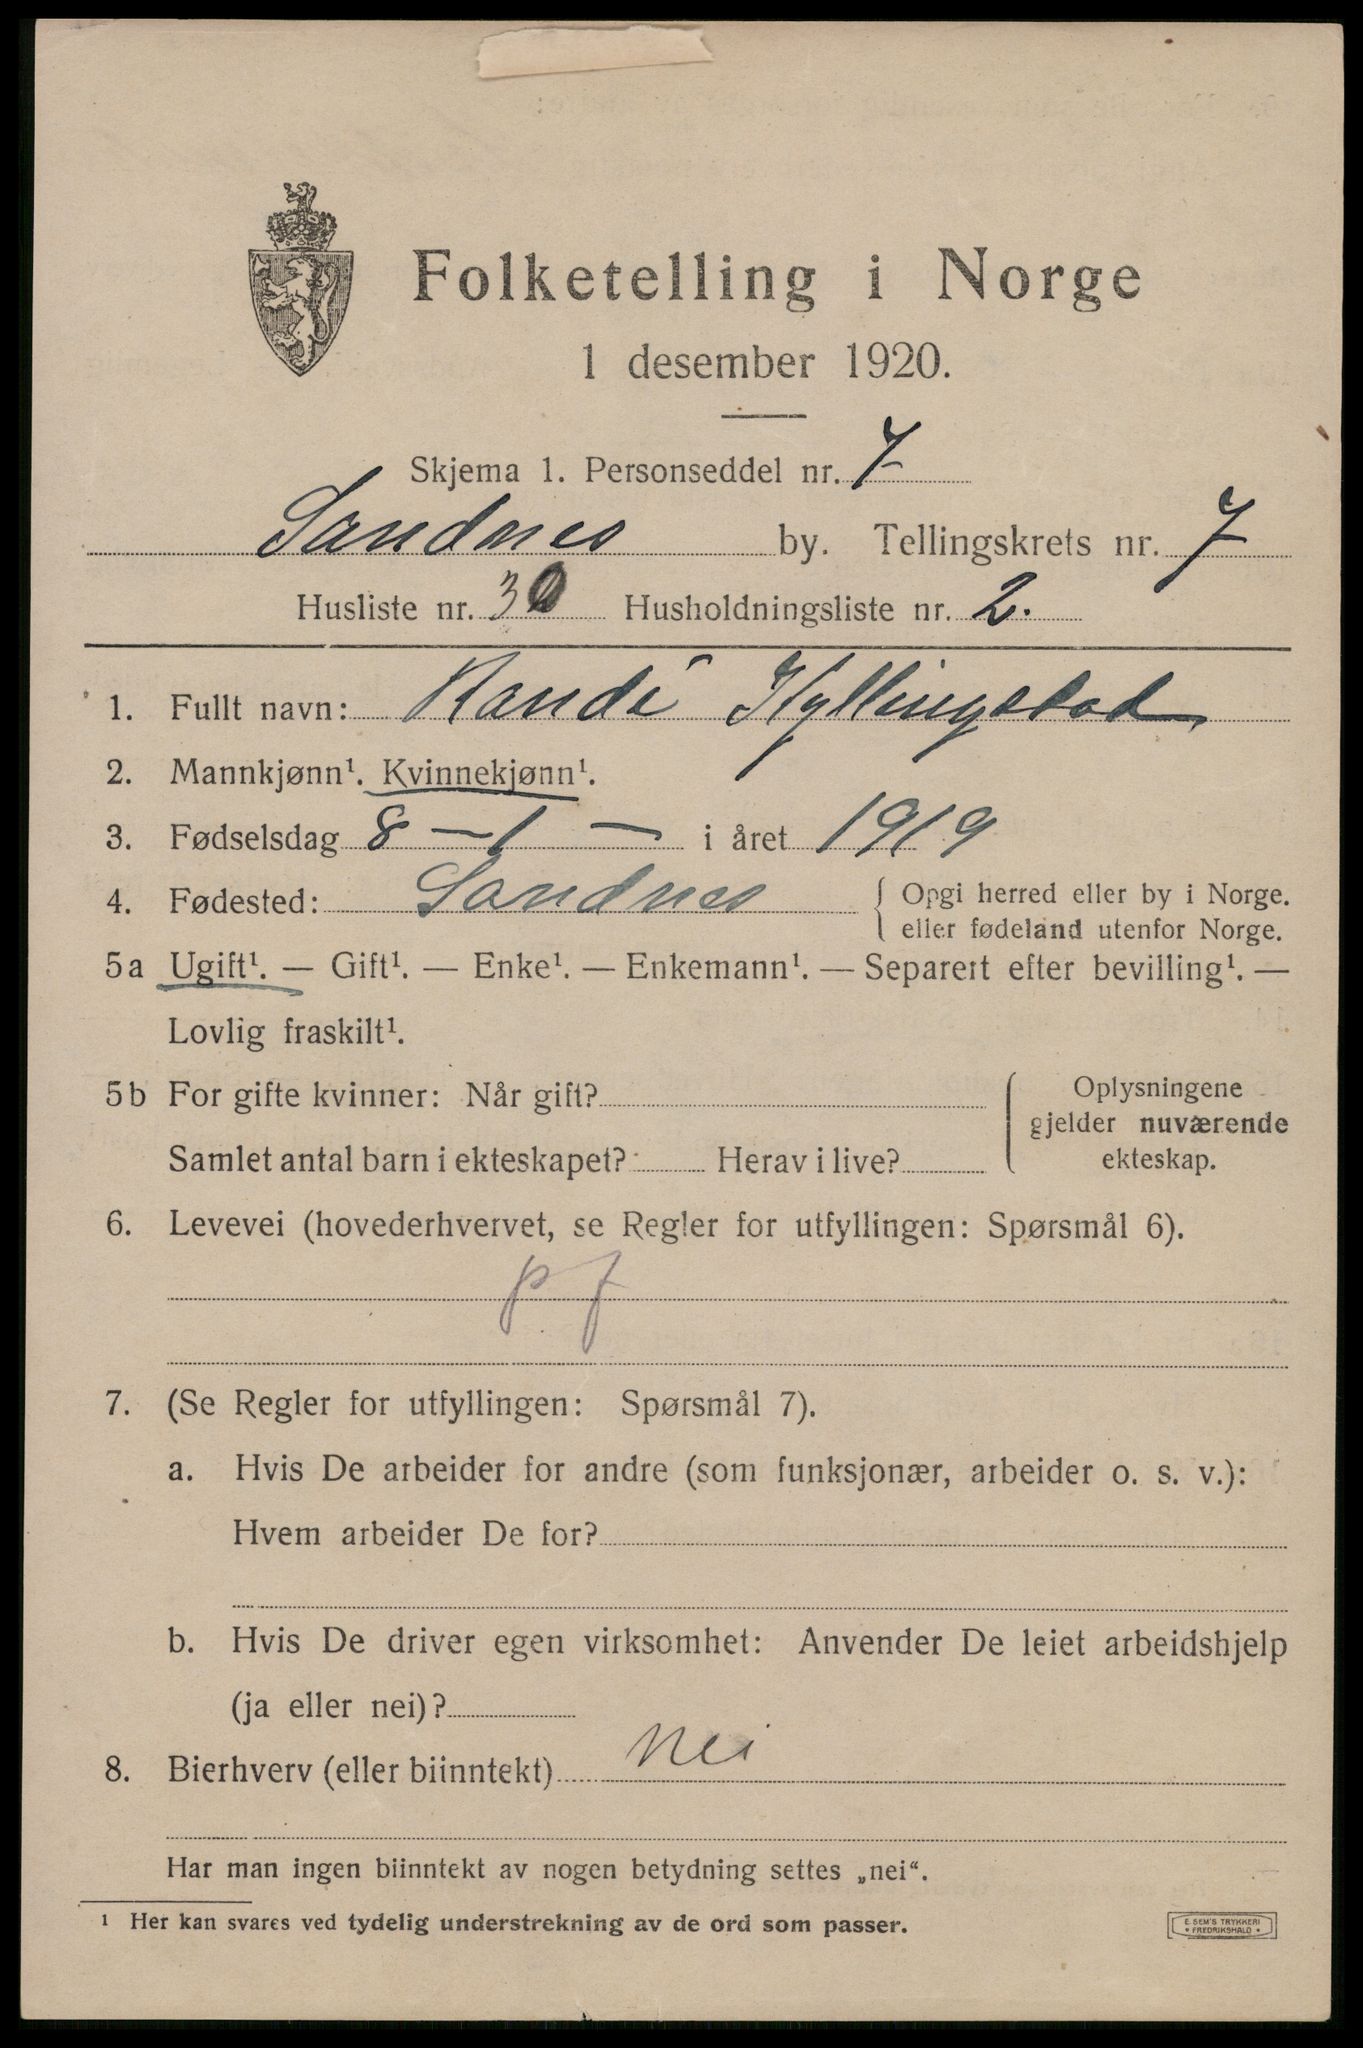 Folketelling i Norge
1 desember 1920.
Skjema 1. Personseddel nr. 7
Sandnes by. Tellingskrets nr. 7
Husliste nr. 30 Husholdningsliste nr. 2.
1. Fullt navn: Randi Kyllingstad
2. Mannkjønn¹. Kvinnekjønn¹.
3. Fødselsdag 8 – 1 – i året 1919
4. Fødested: Sandnes { Opgi herred eller by i Norge.
eller fødeland utenfor Norge.
5a Ugift¹. — Gift¹. — Enke¹. — Enkemann¹. — Separert efter bevilling¹. —
Lovlig fraskilt¹.
5b For gifte kvinner: Når gift? { Oplysningene
gjelder nuværende
Samlet antal barn i ekteskapet? Herav i live? ekteskap.
6. Levevei (hovederhvervet, se Regler for utfyllingen: Spørsmål 6).
pf
7. (Se Regler for utfyllingen: Spørsmål 7).
a. Hvis De arbeider for andre (som funksjonær, arbeider o. s. v.):
Hvem arbeider De for?
b. Hvis De driver egen virksomhet: Anvender De leiet arbeidshjelp
(ja eller nei)?
8. Bierhverv (eller biinntekt) nei
Har man ingen biinntekt av nogen betydning settes „nei“.
¹ Her kan svares ved tydelig understrekning av de ord som passer.
E. SEM'S TRYKKERI
• FREDRIKSHALD •